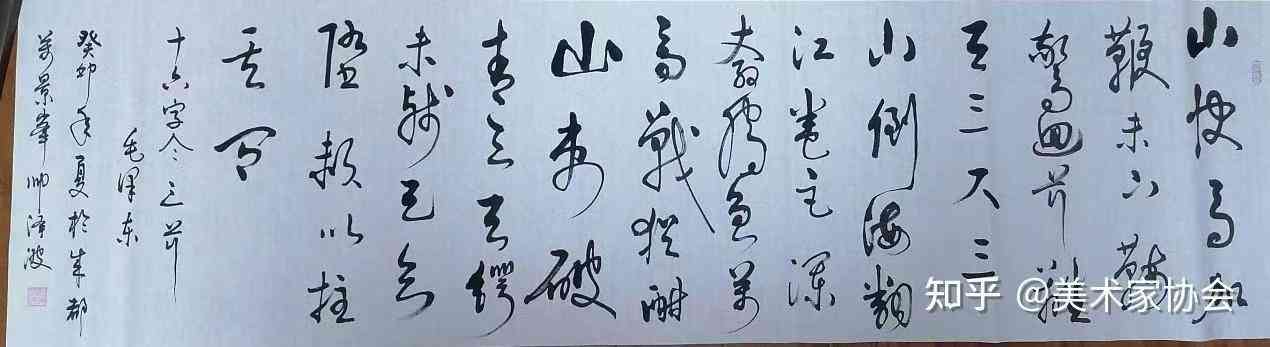 山快马加
鞭未下鞍
驚迴首離
天三尺三
山倒海翻
江卷巨澜
奔腾急万
马戰猶酣
山刺破
青天锷
未残天欲
堕赖以拄
其间
十六字令三首
毛泽东
癸卯年夏於成都
萬景峯 帅泽波
知乎 @美术家协会